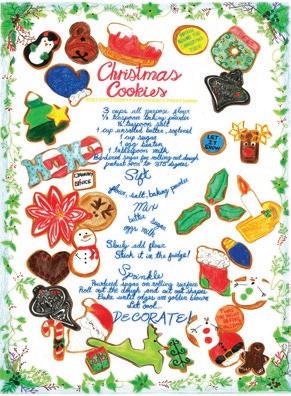 Christmas
Cookies
3 cups all purpose flour
¾ teaspoon baking powder
¼ teaspoon salt
1 cup unsalted butter, softened
1 cup sugar
1 egg beaten
1 tablespoon milk
Powdered sugar for rolling out dough
preheat oven to 375 degrees
Sift
flour, salt, baking powder
Mix
butter, sugar
eggs, milk
Slowly add flour
Stick it in the fridge!
Sprinkle
Powdered sugar on rolling surface
Roll out the dough and cut out shapes
Bake until edges are golden brown
Let cool
DECORATE!
LET
IT
SNOW